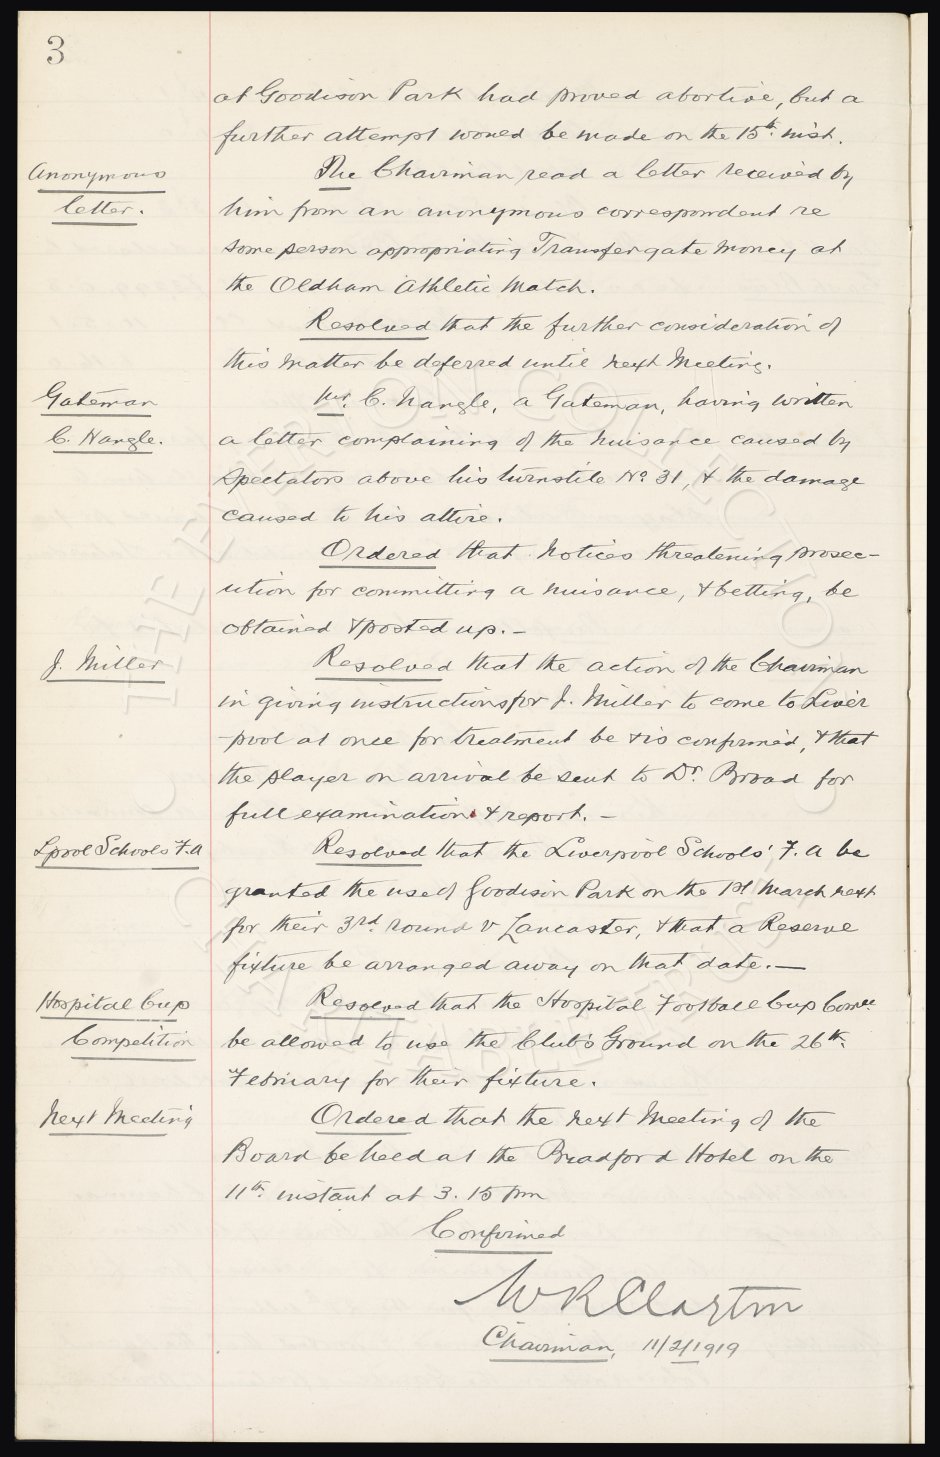 3
at Goodison Park had proved abortive, but a
further attempt would be made on the 15th. inst.
Anonymous
letter.
The Chairman read a letter received by
him from an anonymous correspondent re
some person appropriating Transfer gate money at
the Oldham Athletic Match.
Resolved that the further consideration of
this matter be deferred until next Meeting.
Gateman
C. Nangle.
Mr. C. Nangle, a Gateman, having written
a letter complaining of the nuisance caused by
spectators above his turnstile No 31, & the damage
caused to his attire.
Ordered that notices threatening prosec-
ution for committing a nuisance, & betting, be
obtained & posted up. -
J. Miller
Resolved that the action of the Chairman
in giving instructions for J. Miller to come to Liver
-pool at once for treatment be & is confirmed, & that
the player on arrival be sent to Dr. Broad for
full examination & report. -
Lpool Schools F.A
Resolved that the Liverpool Schools' F.A be
granted the use of Goodison Park on the 1st March next
for their 3rd. round v Lancaster, & that a Reserve
fixture be arranged away on that date. -
Hospital Cup
Competition
Resolved that the Hospital Football Cup Comee.
be allowed to use the Club's Ground on the 26th.
February for their fixture.
Next Meeting
Ordered that the next Meeting of the
Board be held at the Bradford Hotel on the
11th. instant at 3.15 pm
Confirmed
W R Clayton
Chairman, 11/2/1919